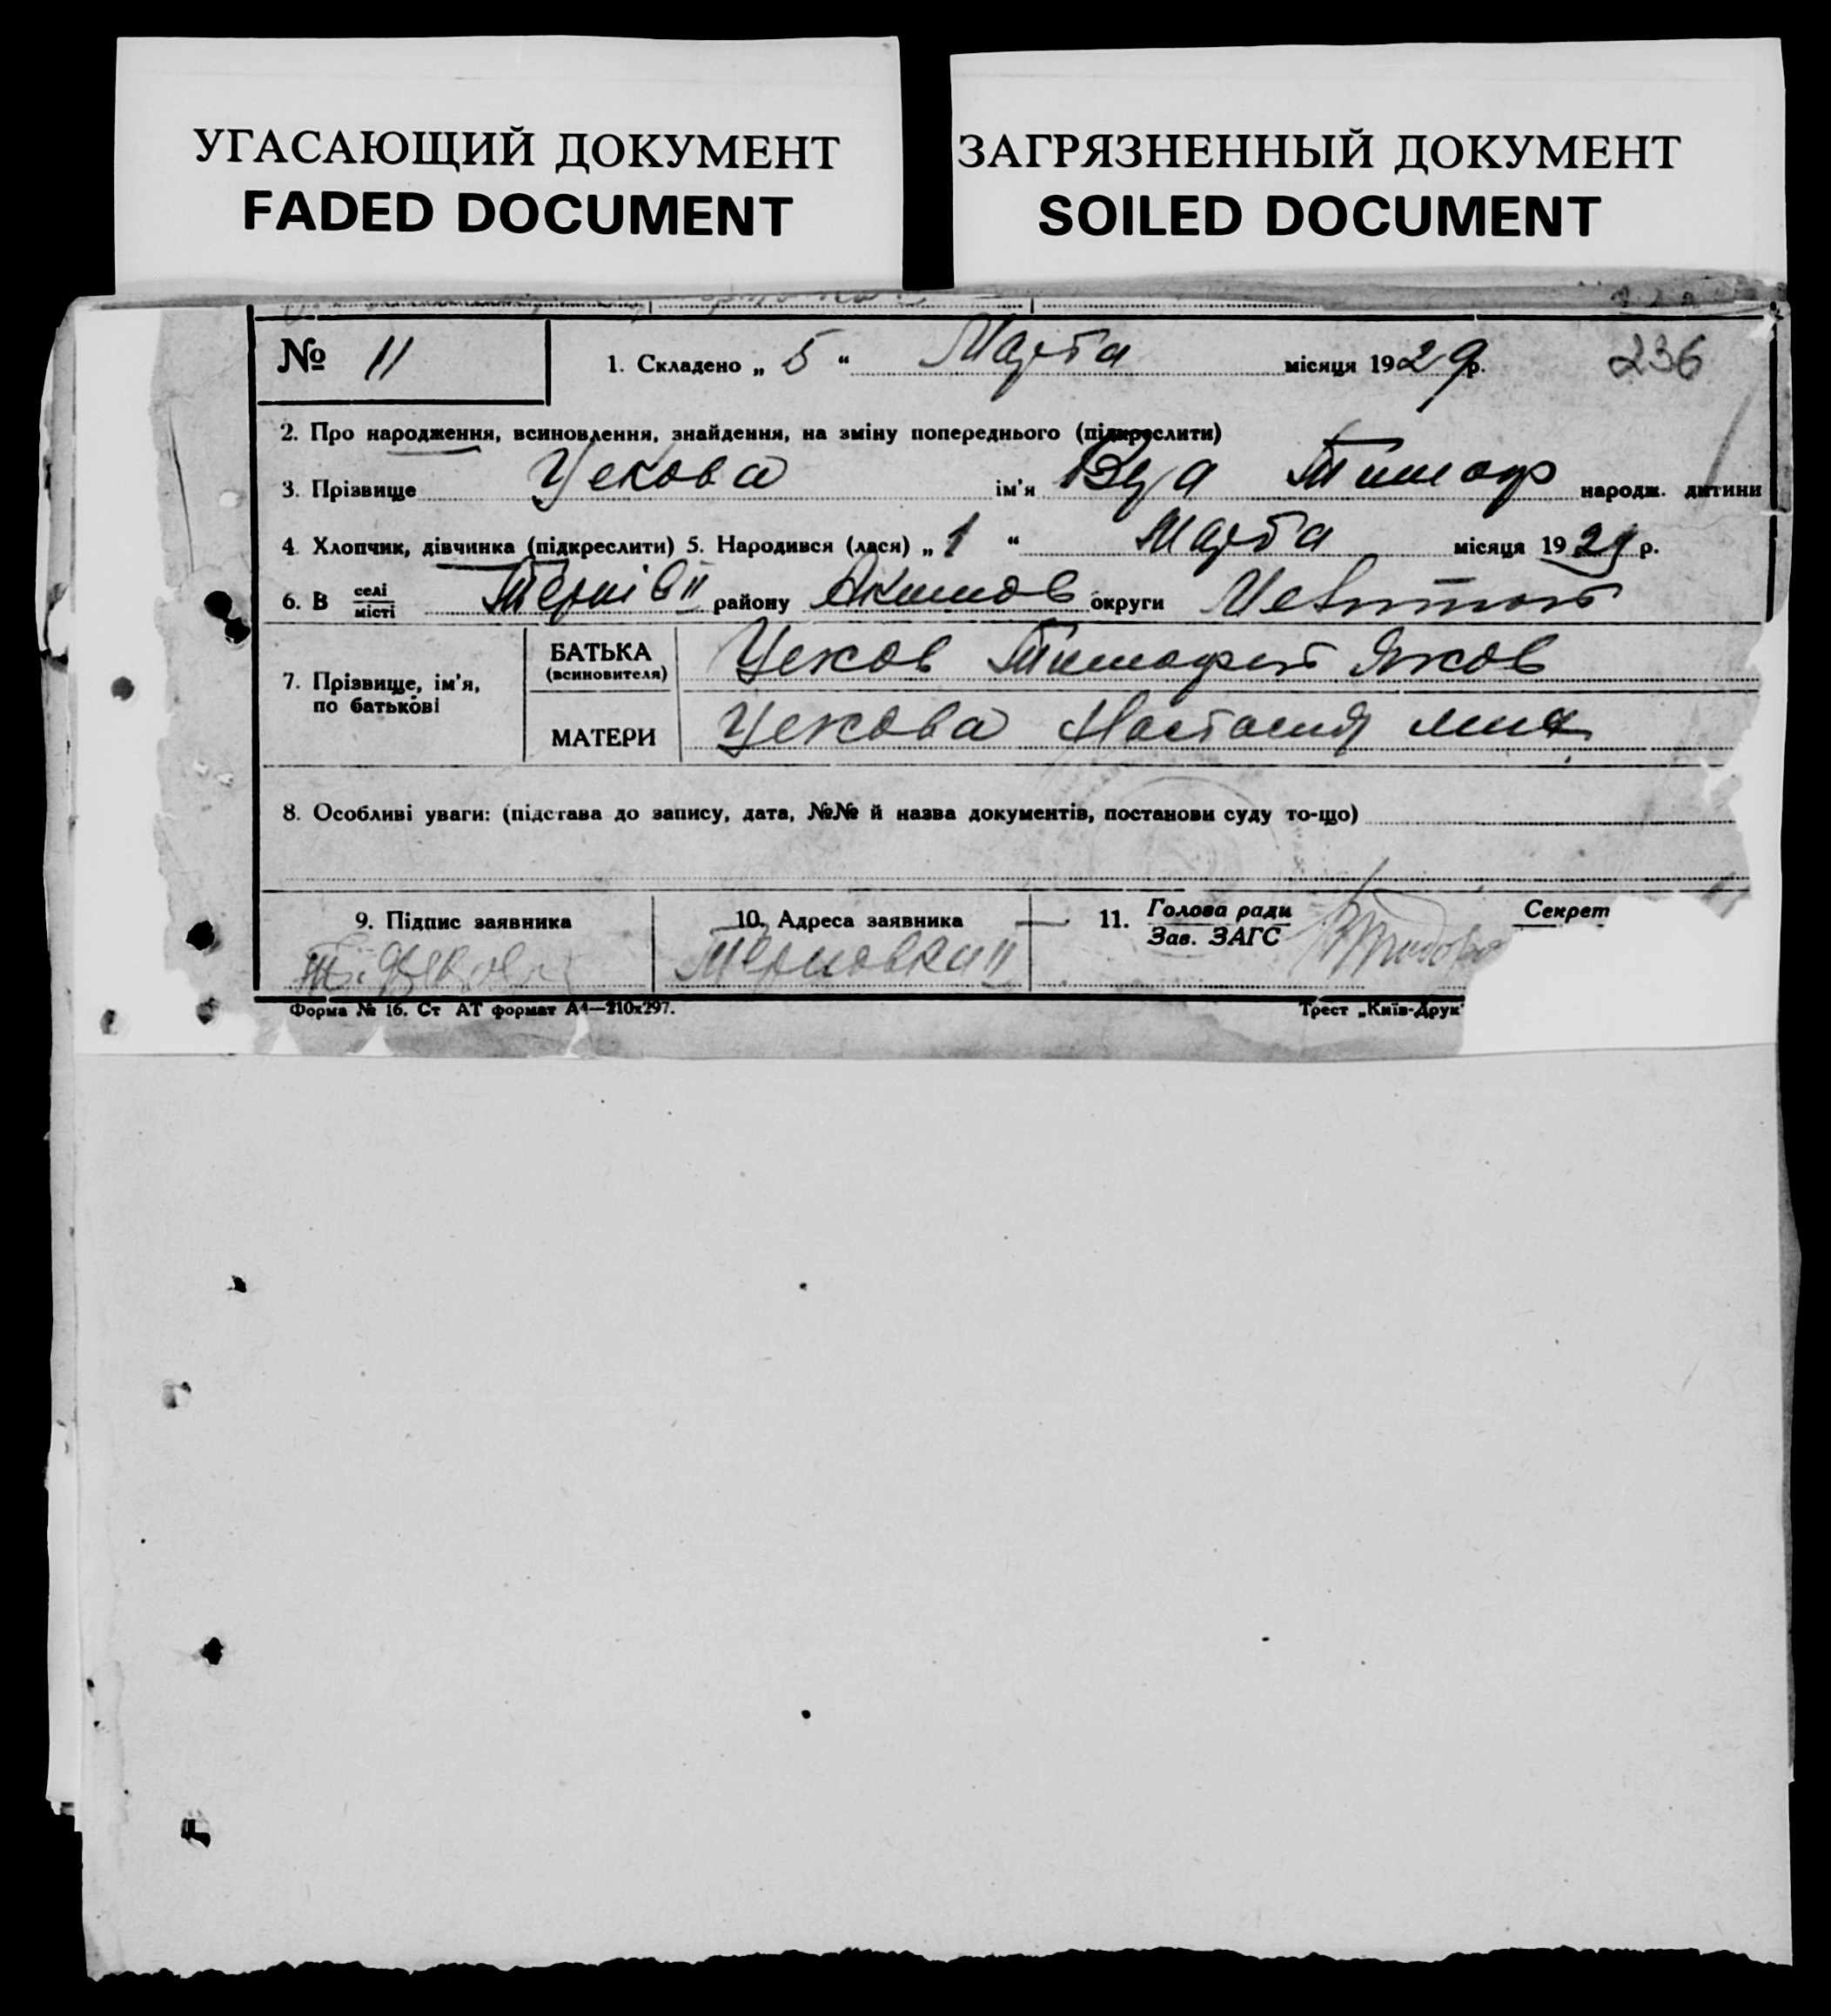 УГАСАЮЩИЙ ДОКУМЕНТ
FADED DOCUMENT
ЗАГРЯЗНЕННЫЙ ДОКУМЕНТ
SOILED DOCUMENT
№ 11
1. Складено „ 5 “ Марта місяця 1929 р. 236
2. Про народження, всиновлення, знайдення, на зміну попереднього (підкреслити)
3. Прізвище Цекова ім'я Вера Тимоф народж. дитини
4. Хлопчик, дівчинка (підкреслити) 5. Народився (лася) „ 1 “ Марта місяця 1929 р.
6. В селі місті Терпів II району Акимов округи Мелитоп
7. Прізвище, ім'я, по батькові
БАТЬКА (всиновителя) Цеков Тимофей Яков
МАТЕРИ Цекова Настасия
8. Особливі уваги: (підстава до запису, дата, №№ й назва документів, постанови суду то-що)
9. Підпис заявника
10. Адреса заявника
11. Голова ради Зав. ЗАГС
Секрет
Т. Цеков
II
Форма № 16. Ст АТ формат А4—210х297.
Трест „Київ-Друк“